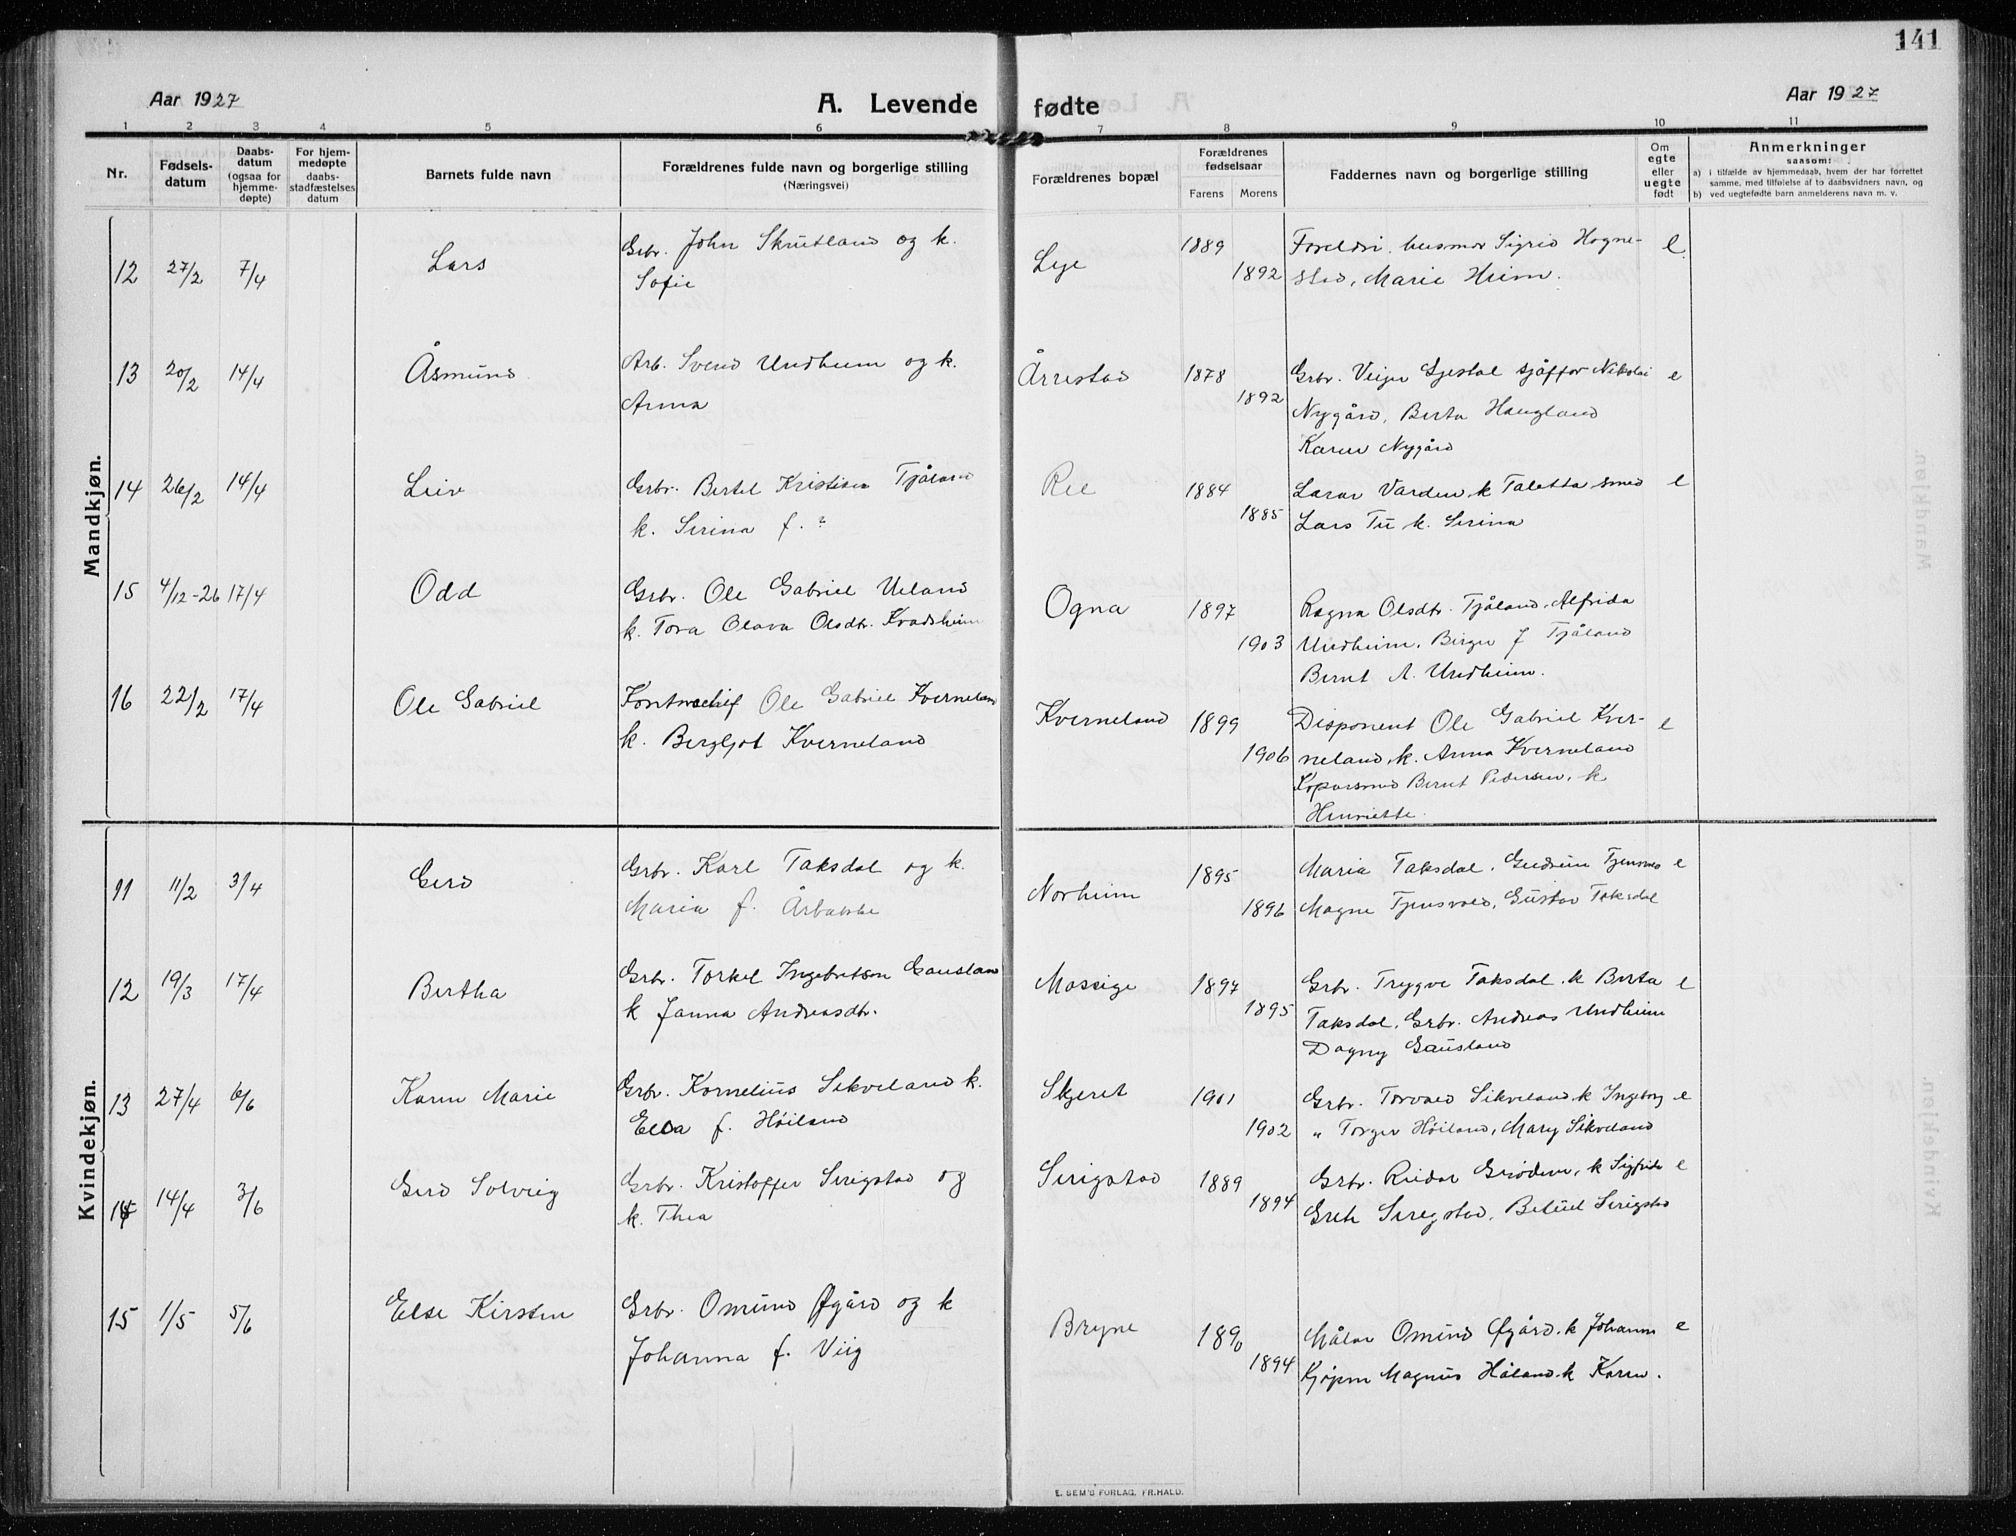 141
Aar 1927
A. Levende fødte
Aar 1927
1 2 3 4 5 6 7 8 9 10 11
Nr.
Fødsels-
datum
Daabs-
datum
(ogsaa for
hjemme-
døpte)
For hjem-
medøpte
daabs-
stadfæstelses
datum
Barnets fulde navn
Forældrenes fulde navn og borgerlige stilling
(Næringsvei)
Forældrenes bopæl
Forældrenes
fødselsaar
Farens Morens
Faddernes navn og borgerlige stilling
Om
egte
eller
uegte
født
Anmerkninger
saasom:
a) i tilfælde av hjemmedaab, hvem der har forrettet
samme, med tilføielse af to daabsvidners navn, og
b) ved uegtefødte barn anmelderens navn m. v.
Mandkjøn.
12 27/2 7/4 Lars Grbr. John Skrutland og k. Lye 1889 Foreldri, husmor Sigrid Hogne- e
Sofie 1892 stad, Marie Heim.
13 20/2 14/4 Åsmund Arb. Svend Undheim og k. Årrestad 1878 Grbr. Veiger Gjestal sjåffør Nikolai e
Anna 1892 Nygård, Berta Haugland
Karen Nygård
14 26/2 14/4 Leiv Grbr. Bertel Kristian Tjåland Ree 1884 Varden k Taletta smed e
k. Serina f. ? 1885 Lars Tu k. Serina
15 4/12-26 17/4 Odd Grbr. Ole Gabriel Ueland Ogna 1897 Ragna Olsdtr. Tjåland, Alfrida
k. Tora Olava Olsdtr. Kvadsheim 1903 Undheim, Birger J Tjåland
Bernt A. Undheim.
16 22/2 17/4 Ole Gabriel Kontorchef Ole Gabriel Kverneland Kverneland 1899 Disponent Ole Gabriel Kver- e
k. Bergljot Kverneland 1906 neland, k. Anna Kverneland
Koparsmed Bernt Pedersen, k
Henriette.
Kvindekjøn.
11 11/2 3/4 Gerd Grbr. Karl Taksdal og k. Norheim 1895 Maria Taksdal, Gudrun Tjensvold e
Maria f. 1896 Magne Tjensvold, Gustav Taksdal
12 19/3 17/4 Bertha Grbr. Torkel Ingebretsen Gausland Mossige 1897 Grbr. Trygve Taksdal, k Berta e
k Janna Andreasdtr. 1895 Taksdal, Grbr. Andreas Undheim
Dagny Gausland
13 27/4 6/6 Karen Marie Grbr. Kornelius Sikveland k. Skjeret 1901 Grbr. Torvald Sikveland k Ingeborg e
Ella f. Høiland 1902 " Torger Høiland, Mary Sikveland
14 14/4 3/6 Gerd Solveig Grbr. Kristoffer Serigstad og Serigstad 1889 Grbr. Reidar Grødem, k Sigfrida e
k. Thea 1894 Grete Seregstad, Betuel Serigstad
15 1/5 5/6 Else Kirsten Grbr. Omund Øgård og k Bryne 1890 Målar Omund Øgård, k Johanna e
Johanna f. Viig 1894 Kjøpm Magnus Håland k Karen.
E. SEM'S FORLAG, FR.HALD.